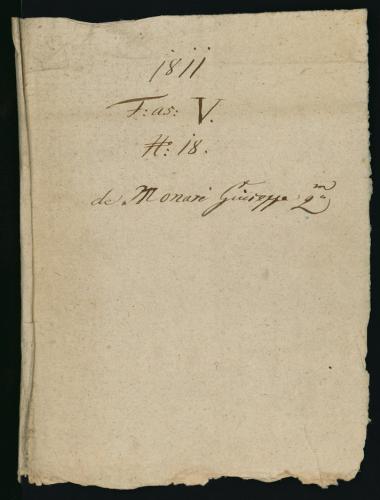 1811
F: as: V.
N: 18.
de Monari Giuseppe qm